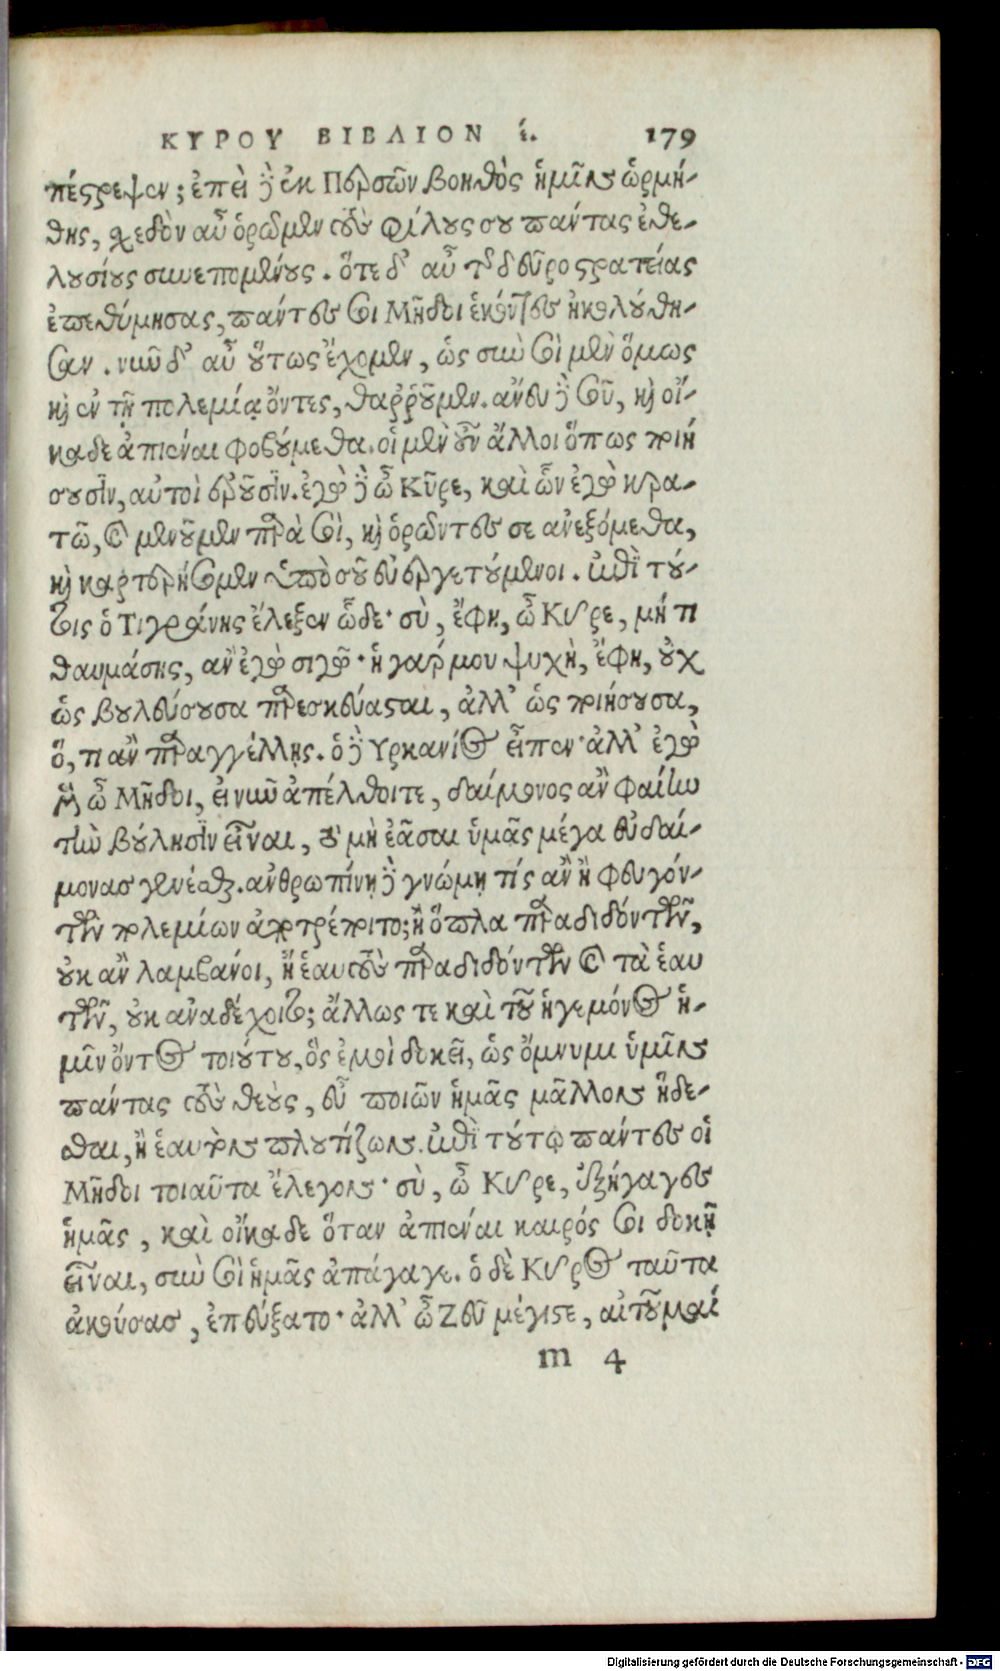 ΚΥΡΟΥ ΒΙΒΛΙΟΝ έ. 179
πέστρεψεν; ἐπεὶ δὲ ἐκ Περσῶν βοηθὸς ἡμῖν ὡρμή-
θης, σχεδὸν αὖ ὁρῶμεν τοὺς φίλους σου πάντας ἐθε-
λουσίους συνεπομένους. ὅτε δ' αὖ τῆς δεῦρο στρατείας
ἐπεθύμησας, πάντες σοι Μῆδοι ἑκόντες ἠκολούθη-
σαν. νῦν δ' αὖ οὕτως ἔχομεν, ὡς σὺν σοὶ μὲν ὅμως
καὶ ἐν τῇ πολεμίᾳ ὄντες, θαῤῥοῦμεν. ἄνευ δὲ σοῦ, καὶ οἴ-
καδε ἀπιέναι φοβούμεθα. οἱ μὲν οὖν ἄλλοι ὅπως ποιή
σουσιν, αὐτοὶ ἐροῦσιν. ἐγὼ δὲ ὦ Κῦρε, καὶ ὧν ἐγὼ κρα-
τῶ, καὶ μενοῦμεν παρὰ σοὶ, καὶ ὁρῶντες σε ἀνεξόμεθα,
καὶ καρτερήσομεν ὑπὸ σοῦ εὐεργετούμενοι. ἐπὶ τού-
τοις ὁ Τιγράνης ἔλεξεν ὧδε· σὺ, ἔφη, ὦ Κῦρε, μή τι
θαυμάσῃς, ἂν ἐγὼ σιγῶ· ἡ γάρ μου ψυχὴ, ἔφη, οὐχ
ὡς βουλεύσουσα παρεσκεύασται, ἀλλ' ὡς ποιήσουσα,
ὅ, τι ἂν παραγγέλλῃς. ὁ δὲ Υρκανίος εἶπεν· ἀλλ' ἐγὼ
μὲν ὦ Μῆδοι, εἰ νῦν ἀπέλθοιτε, δαίμονος ἂν φαίην
τὴν βούλησιν εἶναι, τὸ μὴ ἐᾶσαι ὑμᾶς μέγα εὐδαί-
μονας γενέσθαι. ἀνθρωπίνῃ δὲ γνώμῃ τίς ἂν ἢ φευγόν-
των πολεμίων ἀποτρέποιτο; ἢ ὅπλα παραδιδόντων,
οὐκ ἂν λαμβάνοι, ἢ ἑαυτοὺς παραδιδόντων καὶ τὰ ἑαυ
τῶν, οὐκ ἀναδέχοιτο; ἄλλως τε καὶ τοῦ ἡγεμόνος ἡ-
μῖν ὄντος τοιούτου, ὃς ἐμοὶ δοκεῖ, ὡς ὄμνυμι ὑμῖν
πάντας τοὺς θεοὺς, εὖ ποιῶν ἡμᾶς μᾶλλον ἥδε-
σθαι, ἢ ἑαυτὸν πλουτίζων. ἐπὶ τούτῳ πάντες οἱ
Μῆδοι τοιαῦτα ἔλεγον· σὺ, ὦ Κῦρε, ἐξήγαγες
ἡμᾶς, καὶ οἴκαδε ὅταν ἀπιέναι καιρός σοι δοκῇ
εἶναι, σὺν σοὶ ἡμᾶς ἀπάγαγε. ὁ δὲ Κῦρος ταῦτα
ἀκούσας, ἐπεύξατο· ἀλλ' ὦ Ζεῦ μέγιστε, αἰτοῦμαί
m 4
Digitalisierung gefördert durch die Deutsche Forschungsgemeinschaft - DFG